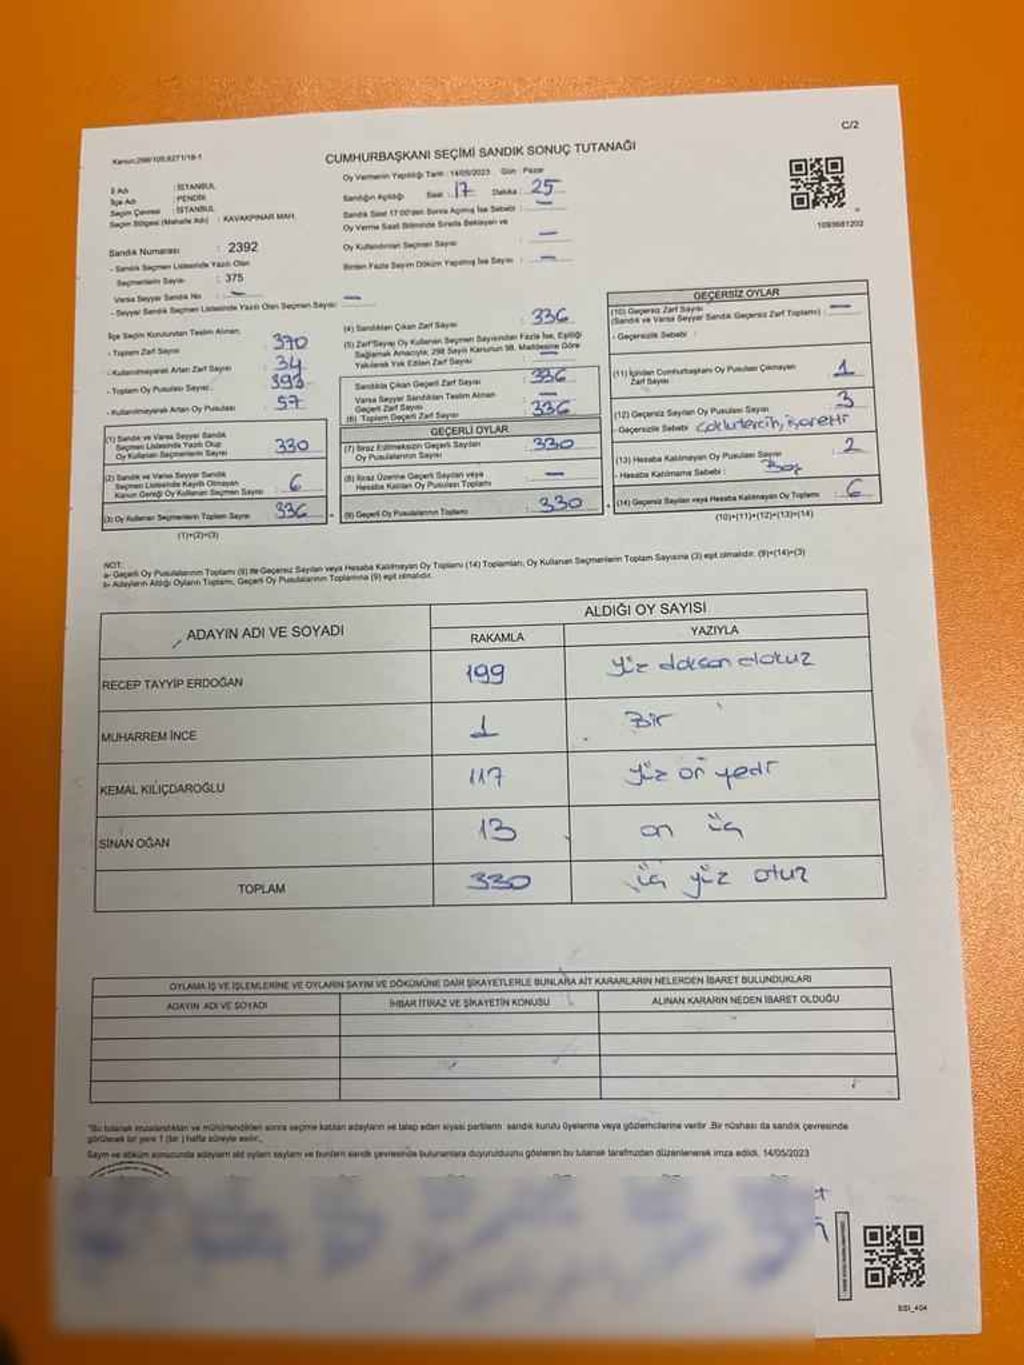 C/2
Kanun:298/105,6271/18-1
CUMHURBAŞKANI SEÇİMİ SANDIK SONUÇ TUTANAĞI
İl Adı : İSTANBUL
İlçe Adı : PENDİK
Seçim Çevresi : İSTANBUL
Seçim Bölgesi (Mahalle Adı) : KAVAKPINAR MAH.
Sandık Numarası : 2392
- Sandık Seçmen Listesinde Yazılı Olan
Seçmenlerin Sayısı : 375
Varsa Seyyar Sandık No : —
- Seyyar Sandık Seçmen Listesinde Yazılı Olan Seçmen Sayısı : —
Oy Vermenin Yapıldığı Tarih : 14/05/2023 Gün : Pazar
Sandığın Açıldığı Saat : 17 Dakika : 25
Sandık Saat 17:00'den Sonra Açılmış İse Sebebi : —
Oy Verme Saati Bitiminde Sırada Bekleyen ve
Oy Kullandırılan Seçmen Sayısı : —
Birden Fazla Sayım Döküm Yapılmış İse Sayısı : —
1093681202
İlçe Seçim Kurulundan Teslim Alınan;
- Toplam Zarf Sayısı : 370
- Kullanılmayarak Artan Zarf Sayısı : 34
- Toplam Oy Pusulası Sayısı : 393
- Kullanılmayarak Artan Oy Pusulası : 57
(1) Sandık ve Varsa Seyyar Sandık
Seçmen Listesinde Yazılı Olup
Oy Kullanan Seçmenlerin Sayısı : 330
(2) Sandık ve Varsa Seyyar Sandık
Seçmen Listesinde Kayıtlı Olmayan
Kanun Gereği Oy Kullanan Seçmen Sayısı : 6
(3) Oy Kullanan Seçmenlerin Toplam Sayısı : 336
(1)+(2)=(3)
(4) Sandıktan Çıkan Zarf Sayısı : 336
(5) Zarf Sayısı Oy Kullanan Seçmen Sayısından Fazla İse, Eşitliği
Sağlamak Amacıyla; 298 Sayılı Kanunun 98. Maddesine Göre
Yakılarak Yok Edilen Zarf Sayısı : —
Sandıkta Çıkan Geçerli Zarf Sayısı : 336
Varsa Seyyar Sandıktan Teslim Alınan
Geçerli Zarf Sayısı : —
(6) Toplam Geçerli Zarf Sayısı : 336
GEÇERLİ OYLAR
(7) İtiraz Edilmeksizin Geçerli Sayılan
Oy Pusulalarının Sayısı : 330
(8) İtiraz Üzerine Geçerli Sayılan veya
Hesaba Katılan Oy Pusulası Toplamı : —
(9) Geçerli Oy Pusulalarının Toplamı : 330
GEÇERSİZ OYLAR
(10) Geçersiz Zarf Sayısı
(Sandık ve Varsa Seyyar Sandık Geçersiz Zarf Toplamı) : —
- Geçersizlik Sebebi :
(11) İçinden Cumhurbaşkanı Oy Pusulası Çıkmayan
Zarf Sayısı : 1
(12) Geçersiz Sayılan Oy Pusulası Sayısı : 3
- Geçersizlik Sebebi : çoklu tercih, işaretli
(13) Hesaba Katılmayan Oy Pusulası Sayısı : 2
- Hesaba Katılmama Sebebi : Boş
(14) Geçersiz Sayılan veya Hesaba Katılmayan Oy Toplamı : 6
(10)+(11)+(12)+(13)=(14)
NOT:
a- Geçerli Oy Pusulalarının Toplamı (9) ile Geçersiz Sayılan veya Hesaba Katılmayan Oy Toplamı (14) Toplamları, Oy Kullanan Seçmenlerin Toplam Sayısına (3) eşit olmalıdır. (9)+(14)=(3)
b- Adayların Aldığı Oyların Toplamı, Geçerli Oy Pusulalarının Toplamına (9) eşit olmalıdır.
ADAYIN ADI VE SOYADI
ALDIĞI OY SAYISI
RAKAMLA YAZIYLA
RECEP TAYYİP ERDOĞAN 199 Yüz doksan dokuz
MUHARREM İNCE 1 Bir
KEMAL KILIÇDAROĞLU 117 Yüz on yedi
SİNAN OĞAN 13 on üç
TOPLAM 330 üç yüz otuz
OYLAMA İŞ VE İŞLEMLERİNE VE OYLARIN SAYIM VE DÖKÜMÜNE DAİR ŞİKAYETLERLE BUNLARA AİT KARARLARIN NELERDEN İBARET BULUNDUKLARI
ADAYIN ADI VE SOYADI İHBAR İTİRAZ VE ŞİKAYETİN KONUSU ALINAN KARARIN NEDEN İBARET OLDUĞU
"Bu tutanak imzalandıktan ve mühürlendikten sonra seçime katılan adayların ve talep eden siyasi partilerin sandık kurulu üyelerine veya gözlemcilerine verilir. Bir nüshası da sandık çevresinde
görülecek bir yere 1 (bir) hafta süreyle asılır.
Sayım ve döküm sonucunda adayların aldığı oyların sayısını ve bunların sandık çevresinde bulunanlara duyurulduğunu gösteren bu tutanak tarafımızdan düzenlenerek imza edildi. 14/05/2023
SSI_404